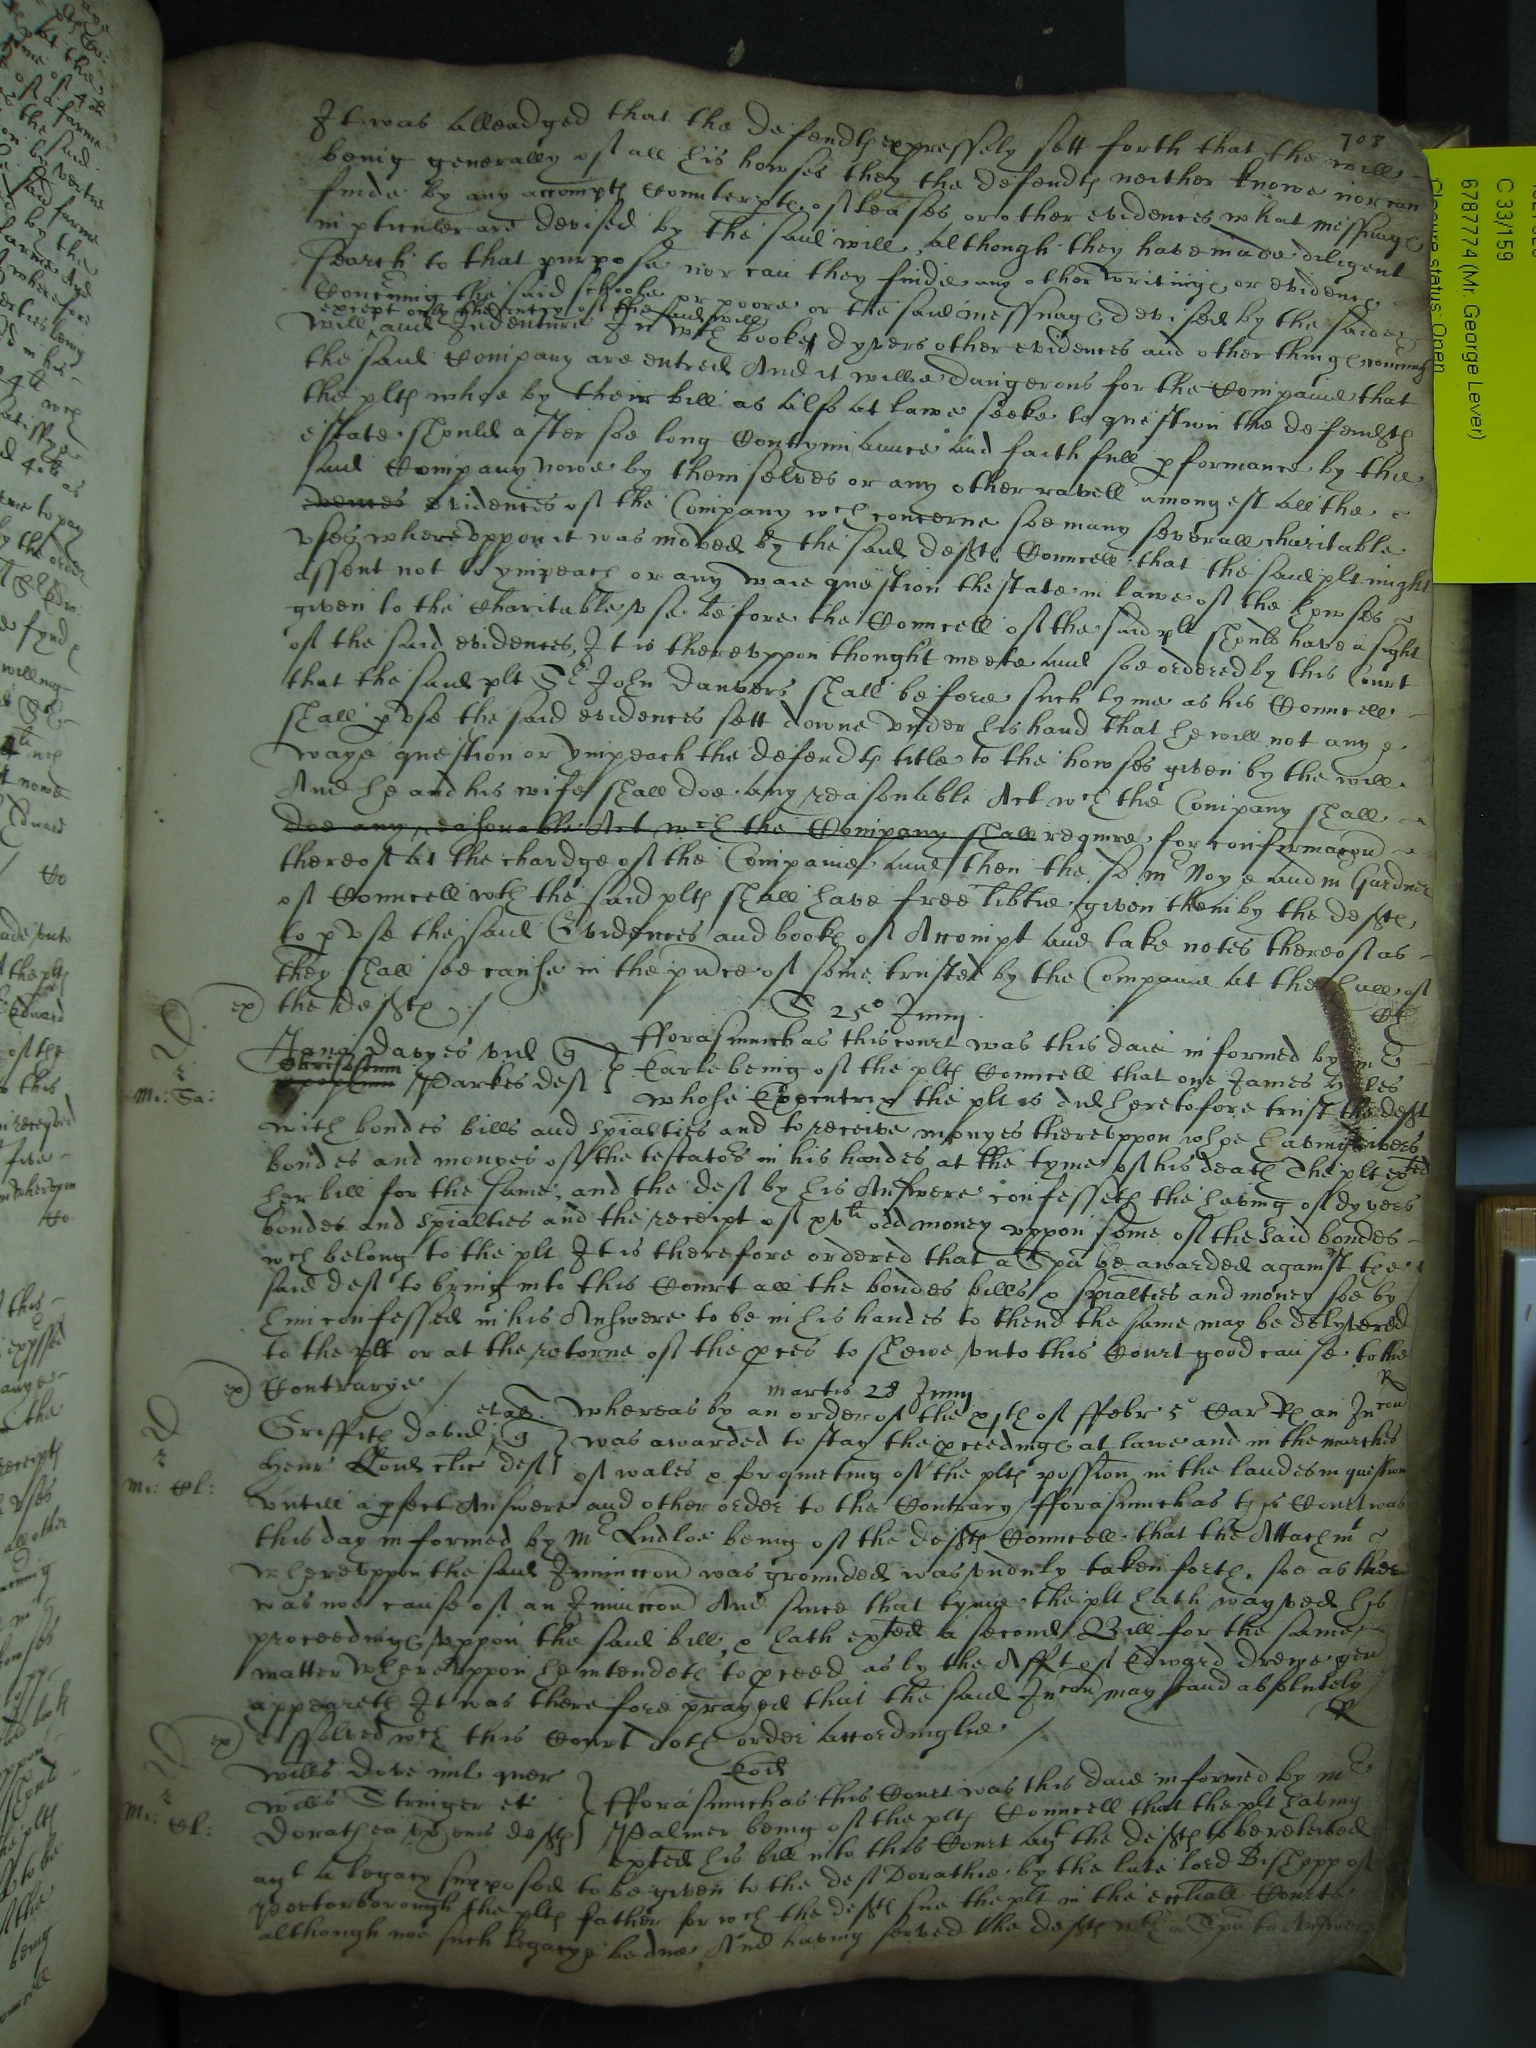 708
It was alleadged that the defendtes expressely sett forth that the will
being generally of all his howses they the defendtes neither knowe nor can
finde by any accompts Counterpts of leases or other evidences what messuages
in pticuler are devised by the said will, although they have made diligent
search to that purpose nor can they finde any other writinges or evidence
Concerning the said schoole or poore or the said messuages devised by the saide
except only the entry of the said will
will and Indenture In wch bookes dyvers other evidences and other thinges concerning
the said Company are entred And it wilbe dangerous for the Companie that
the plts whoe by their bill as also at lawe seeke to question the defendtes
estate should after soe long Contynuaunce and faithfull pformance by the
said Company nowe by themselves or any other ravell amongest all the
evidences of the Company wch concerne soe many severall charitable
vses wherevppon it was moved by the said defts Councell that the said plt might
assent not to ympeach or any waie question the state in lawe of the howses
given to the Charitable vse before the Councell of the said plt should have a sight
of the said evidences, It is therevppon thought meete and soe ordered by this Court
that the said plt Sr John Danvers shall before such tyme as his Councell
shall pvse the said evidences sett downe vnder his hand that he will not any
waye question or ympeach the defendts title to the howses given by the will
And he and his wife shall doe any reasonable Act wch the Company shall
doe any reasonable Act wch the Company shall require for confirmacon
thereof at the chardge of the Companie and then the said mr Noye and mr Gardner
of Councell wth the said plts shall have free libtie given them by the defts
to pvse the said Evidences and bookes of Accompt and take notes thereof as
they shall see cause in the pnce of some trusted by the Companie at the hall of
ex the defts /
S 25o Junij
Jane Davyes vid q Fforasmuch as this court was this daie informed by mr
Parkes deft Earle being of the plts Councell that one James
Mi: Sa: whose Executrix the plt is did heretofore trust the deft
with bondes bills and spialties and to receive monyes therevppon whoe having divers
bondes and monyes of the testators in his handes at the tyme of his death The plt exted
her bill for the same, and the deft by his Answere confesseth the having of dyvers
bondes and spialties and the receipt of xvli odd money vppon some of the said bondes
wch belong to the plt It is therefore ordered that a Spa be awarded against the
said deft to bring into this Court all the bondes bills & spialties and money soe by
him confessed in his Answere to be in his handes to thend the same may be delyvered
to the plt or at the retorne of the pces to shewe vnto this Court good cause to the
ex Contrarye /
martis 28 Junij
Griffith David et al q Whereas by an order of the xjth of Ffebr 5o Car Rs an Incon
Henr Lloid clic deft was awarded to stay the pceedinges at lawe and in the marches
Mi: of wales & for quieting of the plts possion in the landes in question
vntill a pfect Answere and other order to the Contrary Fforasmuch as this Court was
this day informed by Mr Ludloe being of the defts Councell that the Attachmt
wherevppon the said Iniunccon was grounded was vnduly taken forth, soe as there
was noe cause of an Iniunccon And since that tyme the plt hath wayved his
proceedinges vppon the said bill, & hath exted a second Bill for the same
matter wherevppon he intendeth to pceed as by the Afft of Edward Drewe gen
appeareth It was therefore prayed that the said Incon may stand absolutely
ex dissolved wch this Court doth order accordinglie /
Eod
Willis Dove quer
Willis Stringer et Fforasmuch as this Court was this daie informed by mr
Dorathea vx eius defts Palmer being of the plts Councell that the plt having
Mi: exted his bill into this Court agt the defts to be releived
agt a legacy supposed to be given to the deft Dorathie by the late lord Bishopp of
Peeterborough the plts father for wch the defts sue the plt in the eccliall Courte
although noe such legacye be due, And having served the defts wth a Spa to Answere